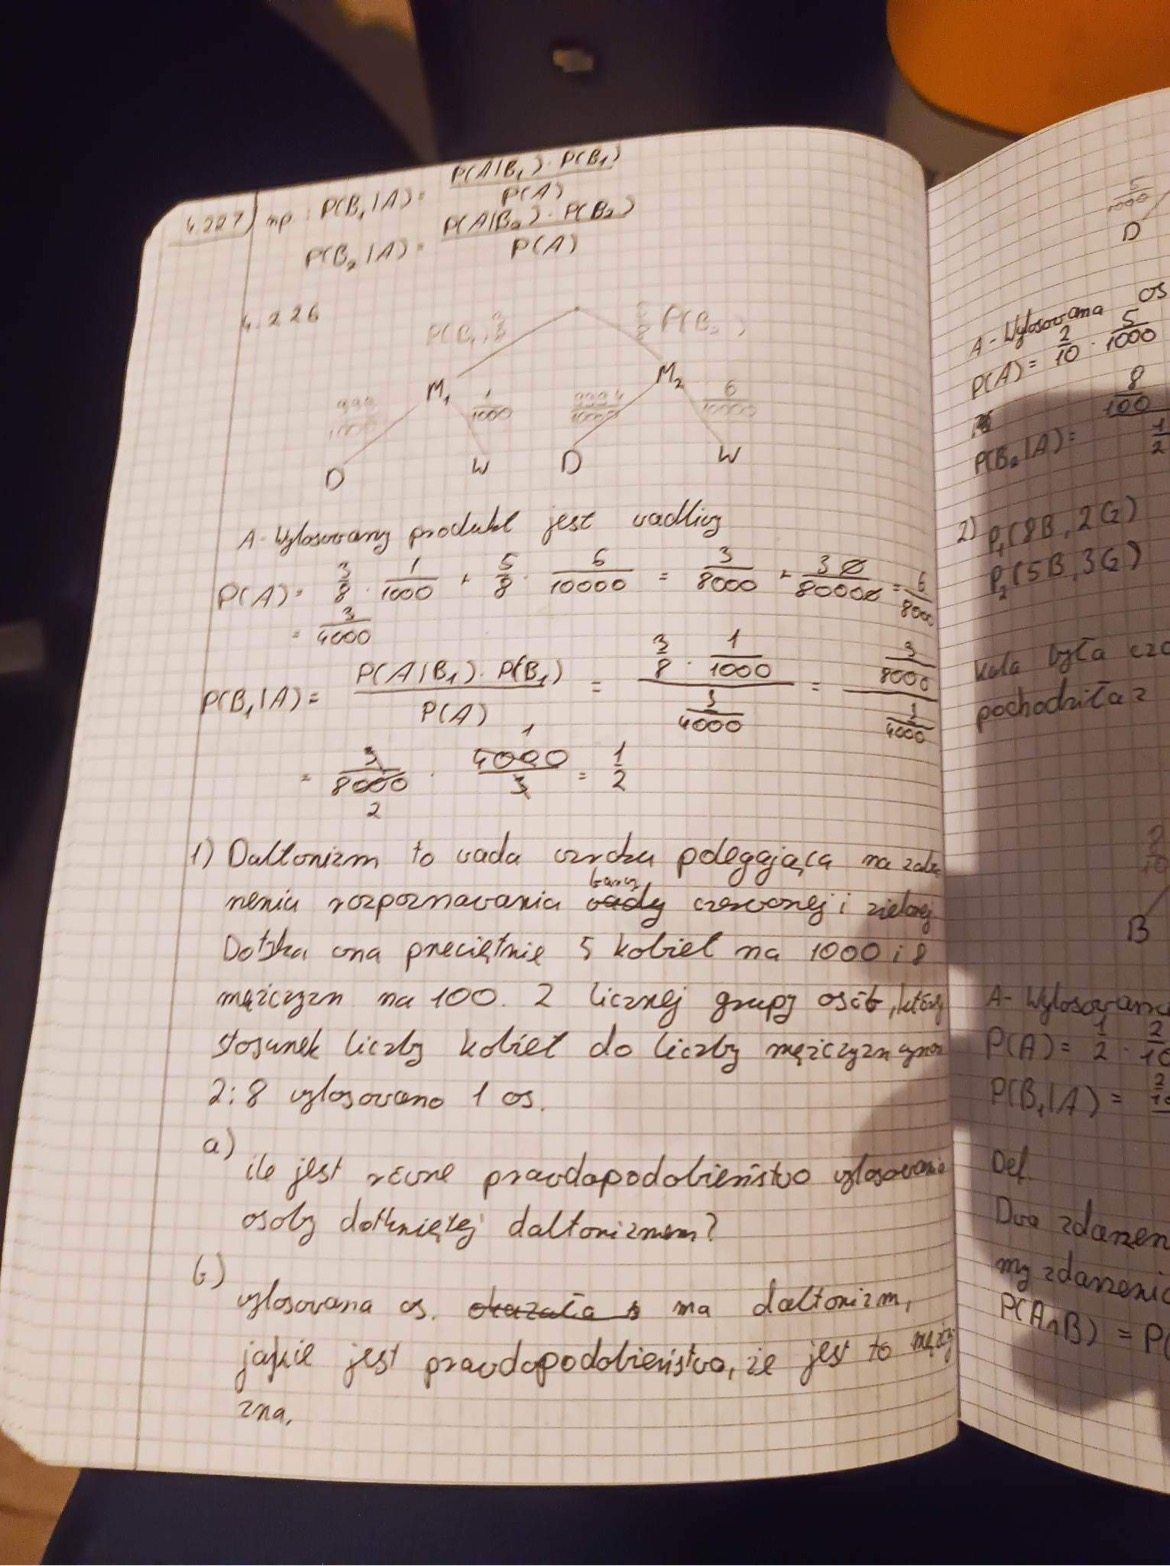 4.227) np: P(B₁|A) = P(A|B₁)·P(B₁) / P(A)
P(B₂|A) = P(A|B₂)·P(B₂) / P(A)
4.226
P(B₁) 3/8 5/8 P(B₂)
M₁ M₂
999/1000 1/1000 9994/10000 6/10000
D W D W
A - Wylosowany produkt jest wadliwy
P(A) = 3/8 · 1/1000 + 5/8 · 6/10000 = 3/8000 + 30/80000 = 6/8000
= 3/4000
P(B₁|A) = P(A|B₁)·P(B₁) / P(A) = (3/8 · 1/1000) / (3/4000) = (3/8000) / (3/4000)
= 3/8000 · 4000/3 = 1/2
1) Daltonizm to wada wzroku polegająca na zabu
rzeniu rozpoznawania wady barwy czerwonej i zielonej.
Dotyka ona przeciętnie 5 kobiet na 1000 i 8
mężczyzn na 100. Z licznej grupy osób, której
stosunek liczby kobiet do liczby mężczyzn wynosi
2:8 wylosowano 1 os.
a)
ile jest równe prawdopodobieństwo wylosowania
osoby dotkniętej daltonizmem?
b)
wylosowana os. okazała s ma daltonizm,
jakie jest prawdopodobieństwo, że jest to mężczy
zna.
5/1000
D
A - Wylosowana os
P(A) = 2/10 · 5/1000
P(B₂|A) = 8/100
1/2
2) P₁(8B, 2G)
P₂(5B, 3G)
kula była cza
pochodziła z
2/10
B
A - Wylosowana
P(A) = 1/2 · 2/10
P(B₁|A) = 2/10
Def
Dwa zdarzen
my zdarzenia
P(A∩B) = P(